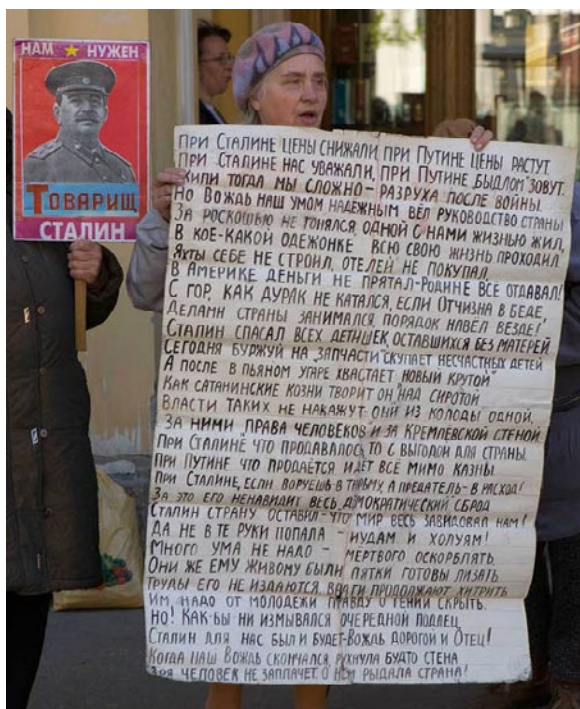 НАМ НУЖЕН
ТОВАРИЩ
СТАЛИН
ПРИ СТАЛИНЕ ЦЕНЫ СНИЖАЛИ, ПРИ ПУТИНЕ ЦЕНЫ РАСТУТ
ПРИ СТАЛИНЕ НАС УВАЖАЛИ, ПРИ ПУТИНЕ „БЫДЛОМ" ЗОВУТ.
ЖИЛИ ТОГДА МЫ СЛОЖНО - РАЗРУХА ПОСЛЕ ВОЙНЫ.
НО ВОЖДЬ НАШ УМОМ НАДЕЖНЫМ ВЁЛ РУКОВОДСТВО СТРАНЫ
ЗА РОСКОШЬЮ НЕ ГОНЯЛСЯ ОДНОЙ С НАМИ ЖИЗНЬЮ ЖИЛ,
В КОЕ-КАКОЙ ОДЕЖОНКЕ ВСЮ СВОЮ ЖИЗНЬ ПРОХОДИЛ
ЯХТЫ СЕБЕ НЕ СТРОИЛ, ОТЕЛЕЙ НЕ ПОКУПАЛ,
В АМЕРИКЕ ДЕНЬГИ НЕ ПРЯТАЛ-РОДИНЕ ВСЁ ОТДАВАЛ!
С ГОР, КАК ДУРАК НЕ КАТАЛСЯ, ЕСЛИ ОТЧИЗНА В БЕДЕ,
ДЕЛАМИ СТРАНЫ ЗАНИМАЛСЯ, ПОРЯДОК НАВЁЛ ВЕЗДЕ!
СТАЛИН СПАСАЛ ВСЕХ ДЕТИШЕК, ОСТАВШИХСЯ БЕЗ МАТЕРЕЙ
СЕГОДНЯ БУРЖУЙ НА „ЗАПЧАСТИ" СКУПАЕТ НЕСЧАСТНЫХ ДЕТЕЙ
А ПОСЛЕ В ПЬЯНОМ УГАРЕ ХВАСТАЕТ НОВЫЙ „КРУТОЙ"
КАК САТАНИНСКИЕ КОЗНИ ТВОРИТ ОН НАД СИРОТОЙ
ВЛАСТИ ТАКИХ НЕ НАКАЖУТ-ОНИ ИЗ КОЛОДЫ ОДНОЙ,
ЗА НИМИ „ПРАВА ЧЕЛОВЕКОВ" И ЗА КРЕМЛЁВСКОЙ СТЕНОЙ
ПРИ СТАЛИНЕ ЧТО ПРОДАВАЛОСЬ, ТО С ВЫГОДОЙ ДЛЯ СТРАНЫ
ПРИ ПУТИНЕ ЧТО ПРОДАЁТСЯ ИДЁТ ВСЁ МИМО КАЗНЫ
ПРИ СТАЛИНЕ, ЕСЛИ ВОРУЕШЬ-В ТЮРЬМУ, А ПРЕДАТЕЛЬ-В РАСХОД!
ЗА ЭТО ЕГО НЕНАВИДИТ ВЕСЬ ДЕМОКРАТИЧЕСКИЙ СБРОД
СТАЛИН СТРАНУ ОСТАВИЛ-ЧТО МИР ВЕСЬ ЗАВИДОВАЛ НАМ!
ДА НЕ В ТЕ РУКИ ПОПАЛА - ИУДАМ И ХОЛУЯМ!
МНОГО УМА НЕ НАДО - МЕРТВОГО ОСКОРБЛЯТЬ.
ОНИ ЖЕ ЕМУ ЖИВОМУ БЫЛИ ПЯТКИ ГОТОВЫ ЛИЗАТЬ
ТРУДЫ ЕГО НЕ ИЗДАЮТСЯ, ВРАГИ ПРОДОЛЖАЮТ ХИТРИТЬ
ИМ НАДО ОТ МОЛОДЁЖИ ПРАВДУ О ГЕНИИ СКРЫТЬ.
НО! КАК-БЫ НИ ИЗМЫВАЛСЯ ОЧЕРЕДНОЙ ПОДЛЕЦ,
СТАЛИН ДЛЯ НАС БЫЛ И БУДЕТ-ВОЖДЬ ДОРОГОЙ И ОТЕЦ!
КОГДА НАШ ВОЖДЬ СКОНЧАЛСЯ, РУХНУЛА БУДТО СТЕНА
ЗРЯ ЧЕЛОВЕК НЕ ЗАПЛАЧЕТ, О НЁМ РЫДАЛА СТРАНА!